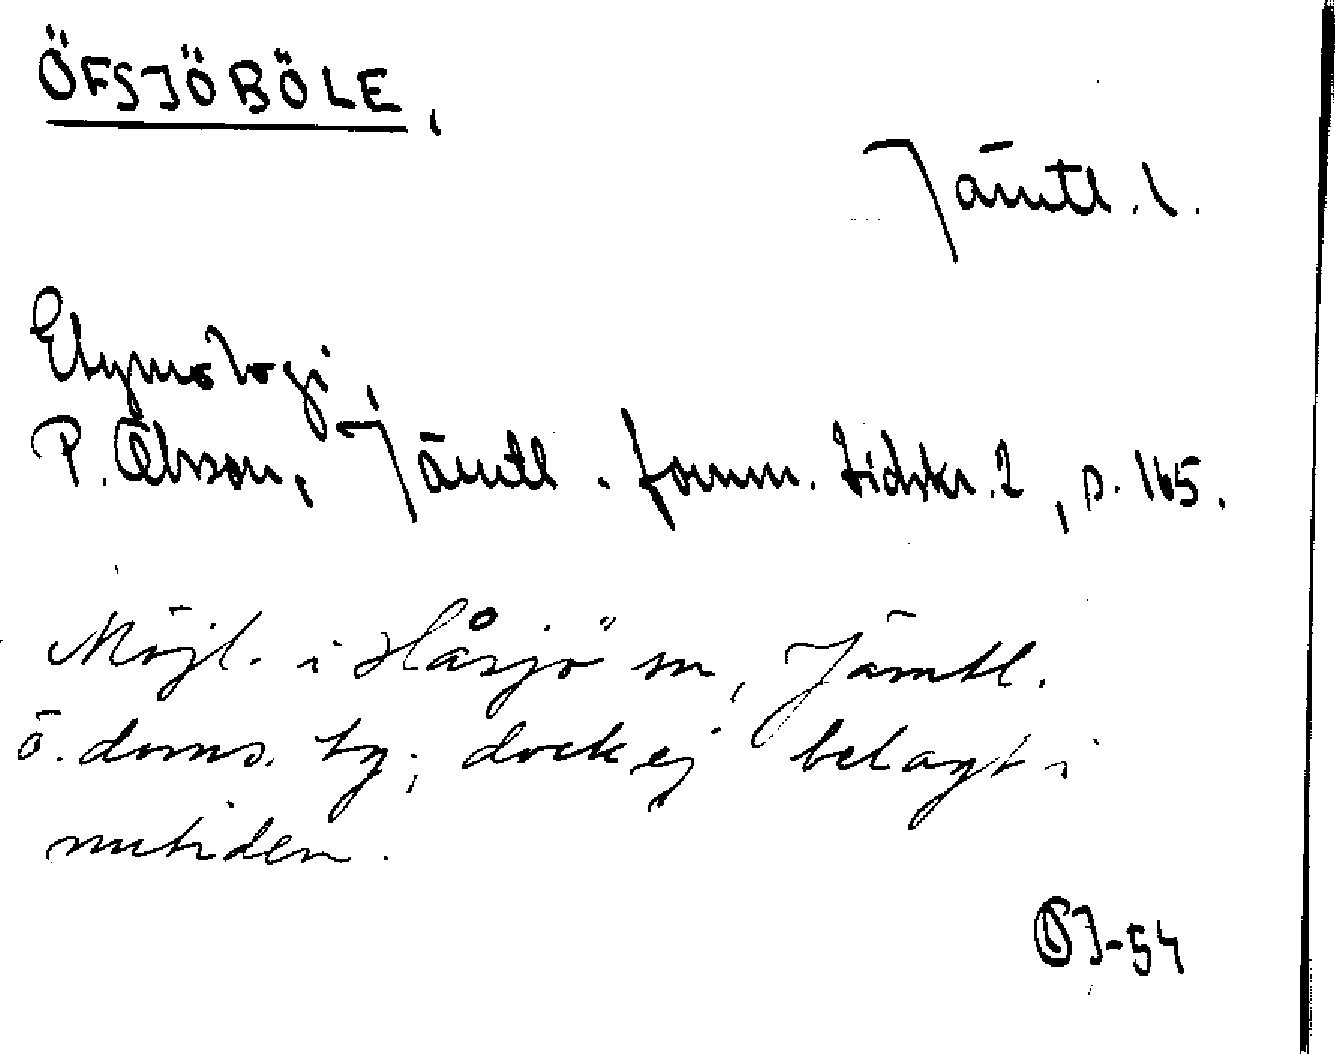 ÖFSJÖBÖLE,
Jämtl. l.
Etymologi,
P. Olsson, Jämtl. fornm. tidskr. 2, s. 165.
Möjl. i Håsjö sn, Jämtl.
ö. doms. tg; dock ej belagt i
nutiden.
SJ-54